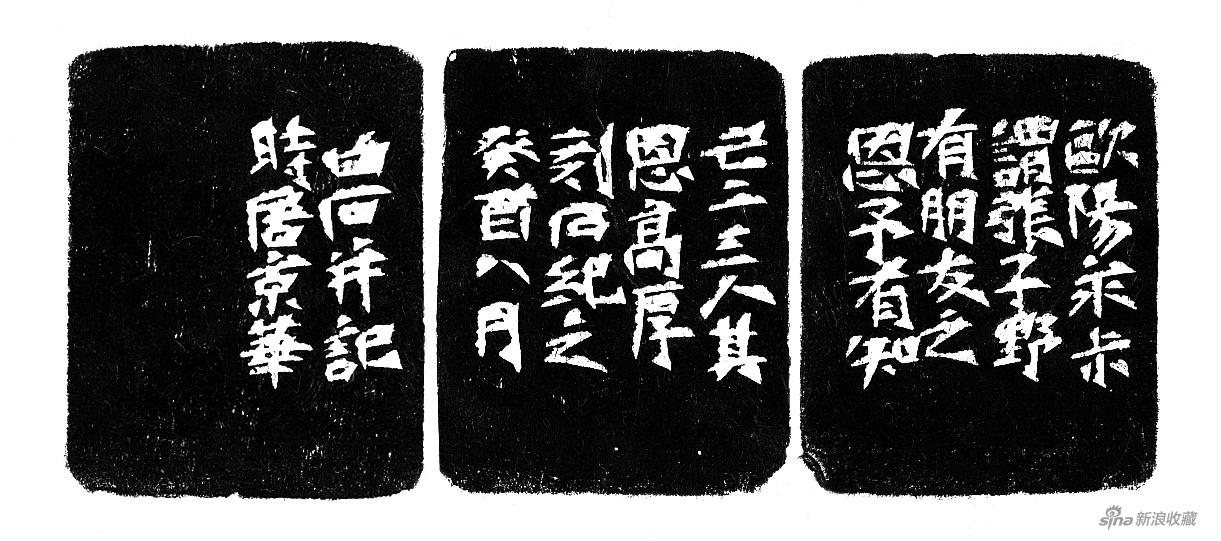 歐陽永尗
謂張子野
有朋友之
恩予有知
己二三人其
恩高厚
刻石紀之
癸酉八月
白石并記
時居京華
sina新浪收藏